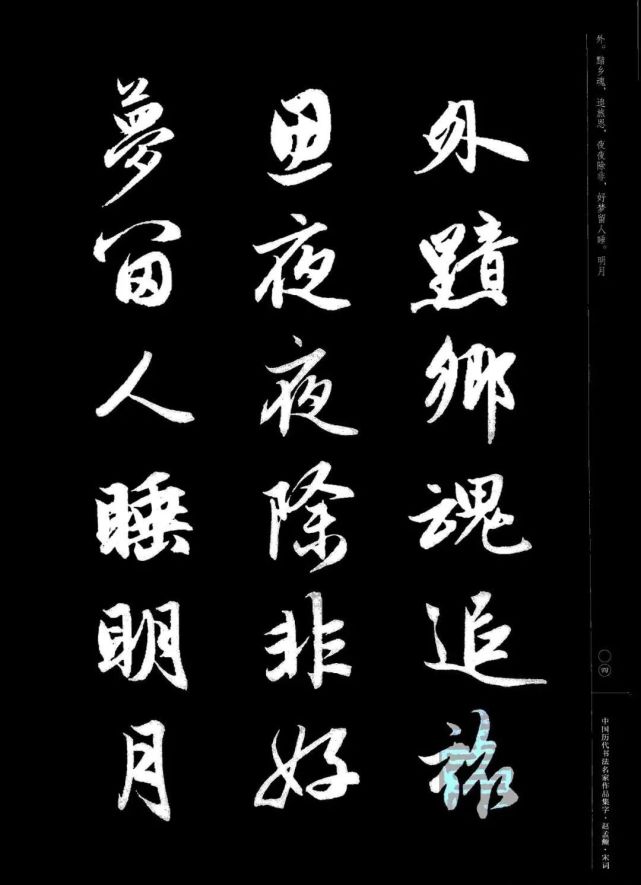 外。黯乡魂，追旅思，夜夜除非，好梦留人睡。明月
〇四
中国历代书法名家作品集字·赵孟頫·宋词
外黯鄉魂追旅
思夜夜除非好
夢留人睡明月